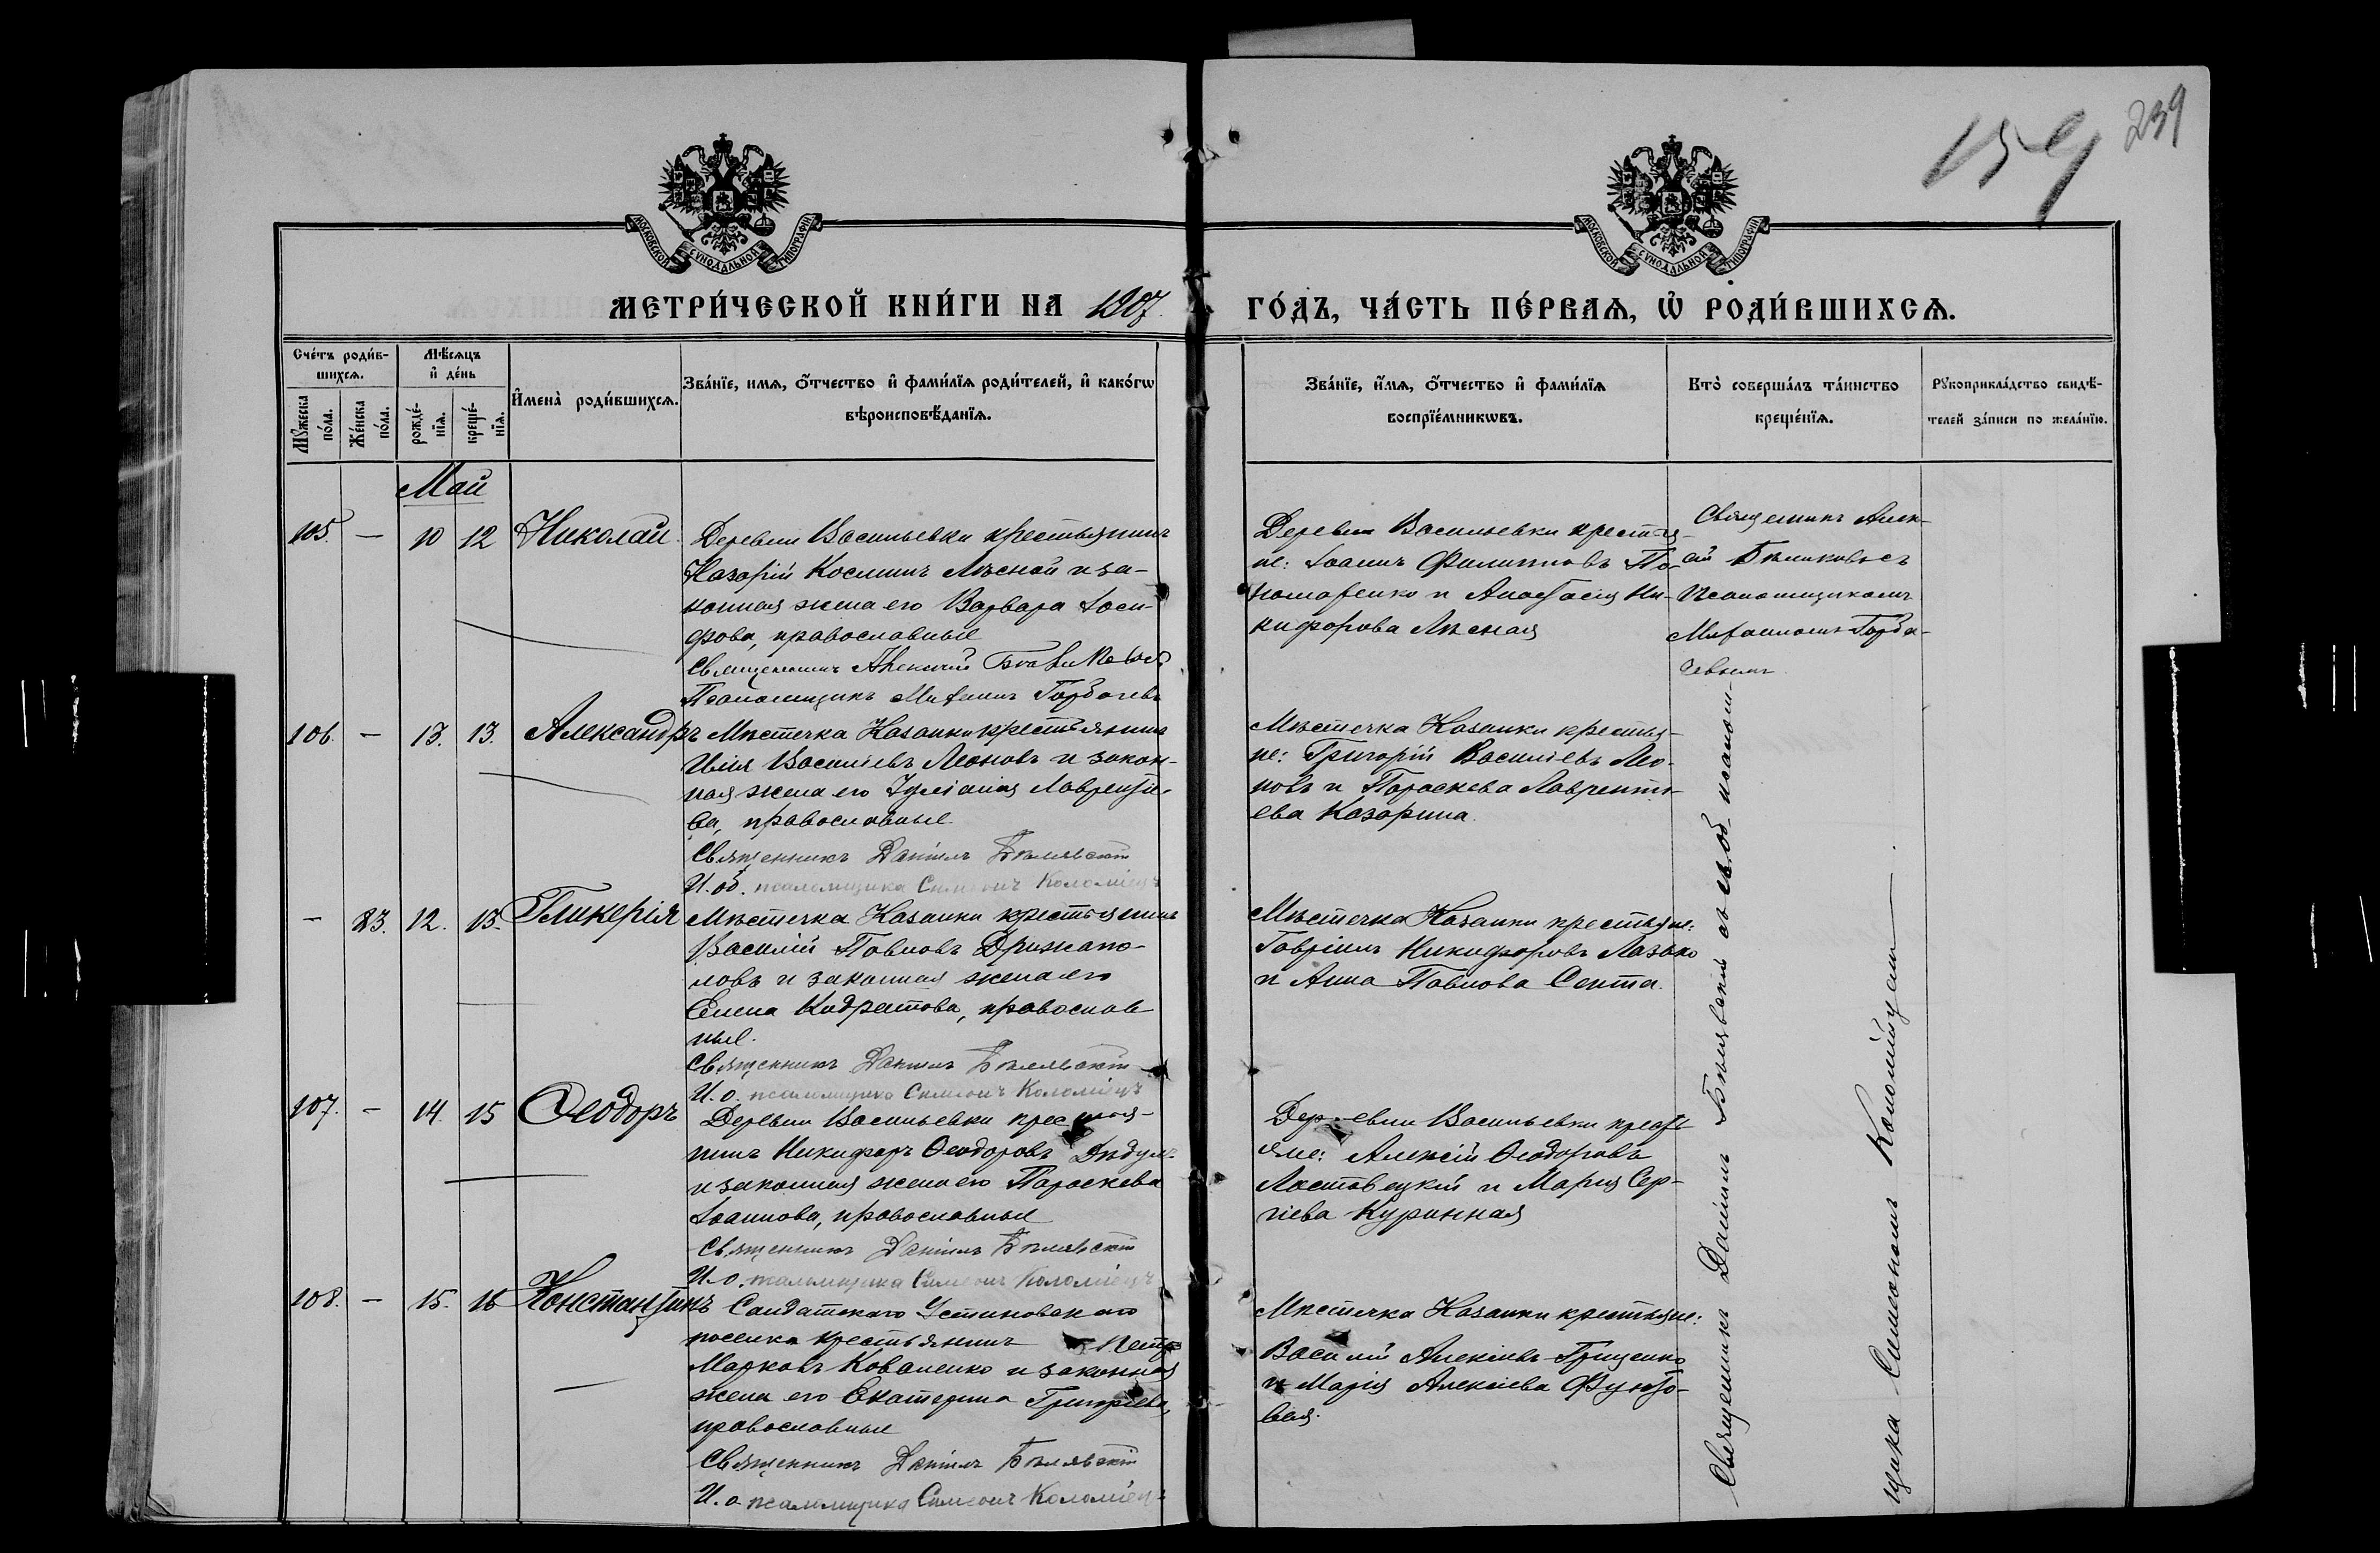 159
239
МОСКОВСКОЙ СѴНОДАЛЬНОЙ ТИПОГРАФІИ
МОСКОВСКОЙ СѴНОДАЛЬНОЙ ТИПОГРАФІИ
МЕТРИ́ЧЕСКОЙ КНИ́ГИ НА 1907.
ГО́ДЪ, ЧА́СТЬ ПЕ́РВАѦ, Ѽ РОДИ́ВШИХСѦ.
Сче́тъ роди́в-
шихсѧ.
Мꙋ́жеска
по́ла.
Же́нска
по́ла.
Мѣ́сѧцъ
и҆ де́нь
рожде́-
нїѧ.
креще́-
нїѧ.
И҆мена̀ роди́вшихсѧ.
Зва́нїе, имѧ, ѻ҆́тчество и҆ фами́лїѧ роди́телей, и҆ како́гѡ
вѣроисповѣ́данїѧ.
Зва́нїе, и҆́мѧ, ѻ҆́тчество и҆ фами́лїѧ
воспрїе́мникѡвъ.
Кто̀ соверша́лъ та́инство
креще́нїѧ.
Рꙋкоприкла́дство свидѣ́-
телей за́писи по жела́нїю.
Май
105. — 10 12 Николай
Деревни Васильевки крестьянинъ
Назарій Косминъ Лѣсной и за-
конная жена его Варвара Іоси-
фова, православные
Священникъ Алексій
Псаломщикъ Горбачевъ
Деревни Васильевки крестья-
не: Іоаннъ Филипповъ По-
номаренко и Анастасія Ни-
кифорова Лѣсная
Священникъ Алек-
сій съ
Псаломщикомъ
Горба-
чевымъ
106. — 13. 13. Александръ
Мѣстечка Казанки крестьянинъ
Илія Василіевъ Леоновъ и закон-
ная жена его Іуліанія Лаврентіе-
ва, православные.
Священникъ Даніилъ Бѣлявскій
И. об. псаломщика Симеонъ Коломіецъ
Мѣстечка Казанки крестья-
не: Григорій Василіевъ Лео-
новъ и Параскева Лаврентi-
ева Казарина.
— 23. 12. 13. Гликерія
Мѣстечка Казанки крестьянинъ
Василій Павловъ Дрижапо-
ловъ и законная жена его
Елена Кодратова, православ-
ные.
Священникъ Даніилъ Бѣлявскій
И. о. псаломщика Симеонъ Коломіецъ
Мѣстечка Казанки крестьяне:
Гавріилъ Никифоровъ Лазько
и Анна Павлова Септа.
107. — 14. 15 Ѳеодоръ
Деревни Васильевки крестья-
нинъ Никифоръ Ѳеодоровъ
и законная жена его Параскева
Іоаннова, православные
Священникъ Даніилъ Бѣлявскій
И. о. псаломщика Симеонъ Коломіецъ
Деревни Васильевки крестъ-
яне: Алексій Ѳеодоровъ
Ластовецкій и Марія Сер-
гіева Куринная
108. — 15. 16 Константинъ
Солдатскаго Устиновскаго
поселка крестьянинъ Петръ
Марковъ Коваленко и законная
жена его Екатерина Григоріева,
православные
Священникъ Даніилъ Бѣлявскій
И. о. псаломщика Симеонъ Коломіецъ
Мѣстечка Казанки крестьяне:
Василій Алексіевъ Гриценко
и Марія Алексіева Фунто-
вая.
Священникъ Даніилъ Бѣлявскій съ и. об. псалом-
щика Симеономъ Коломійцемъ